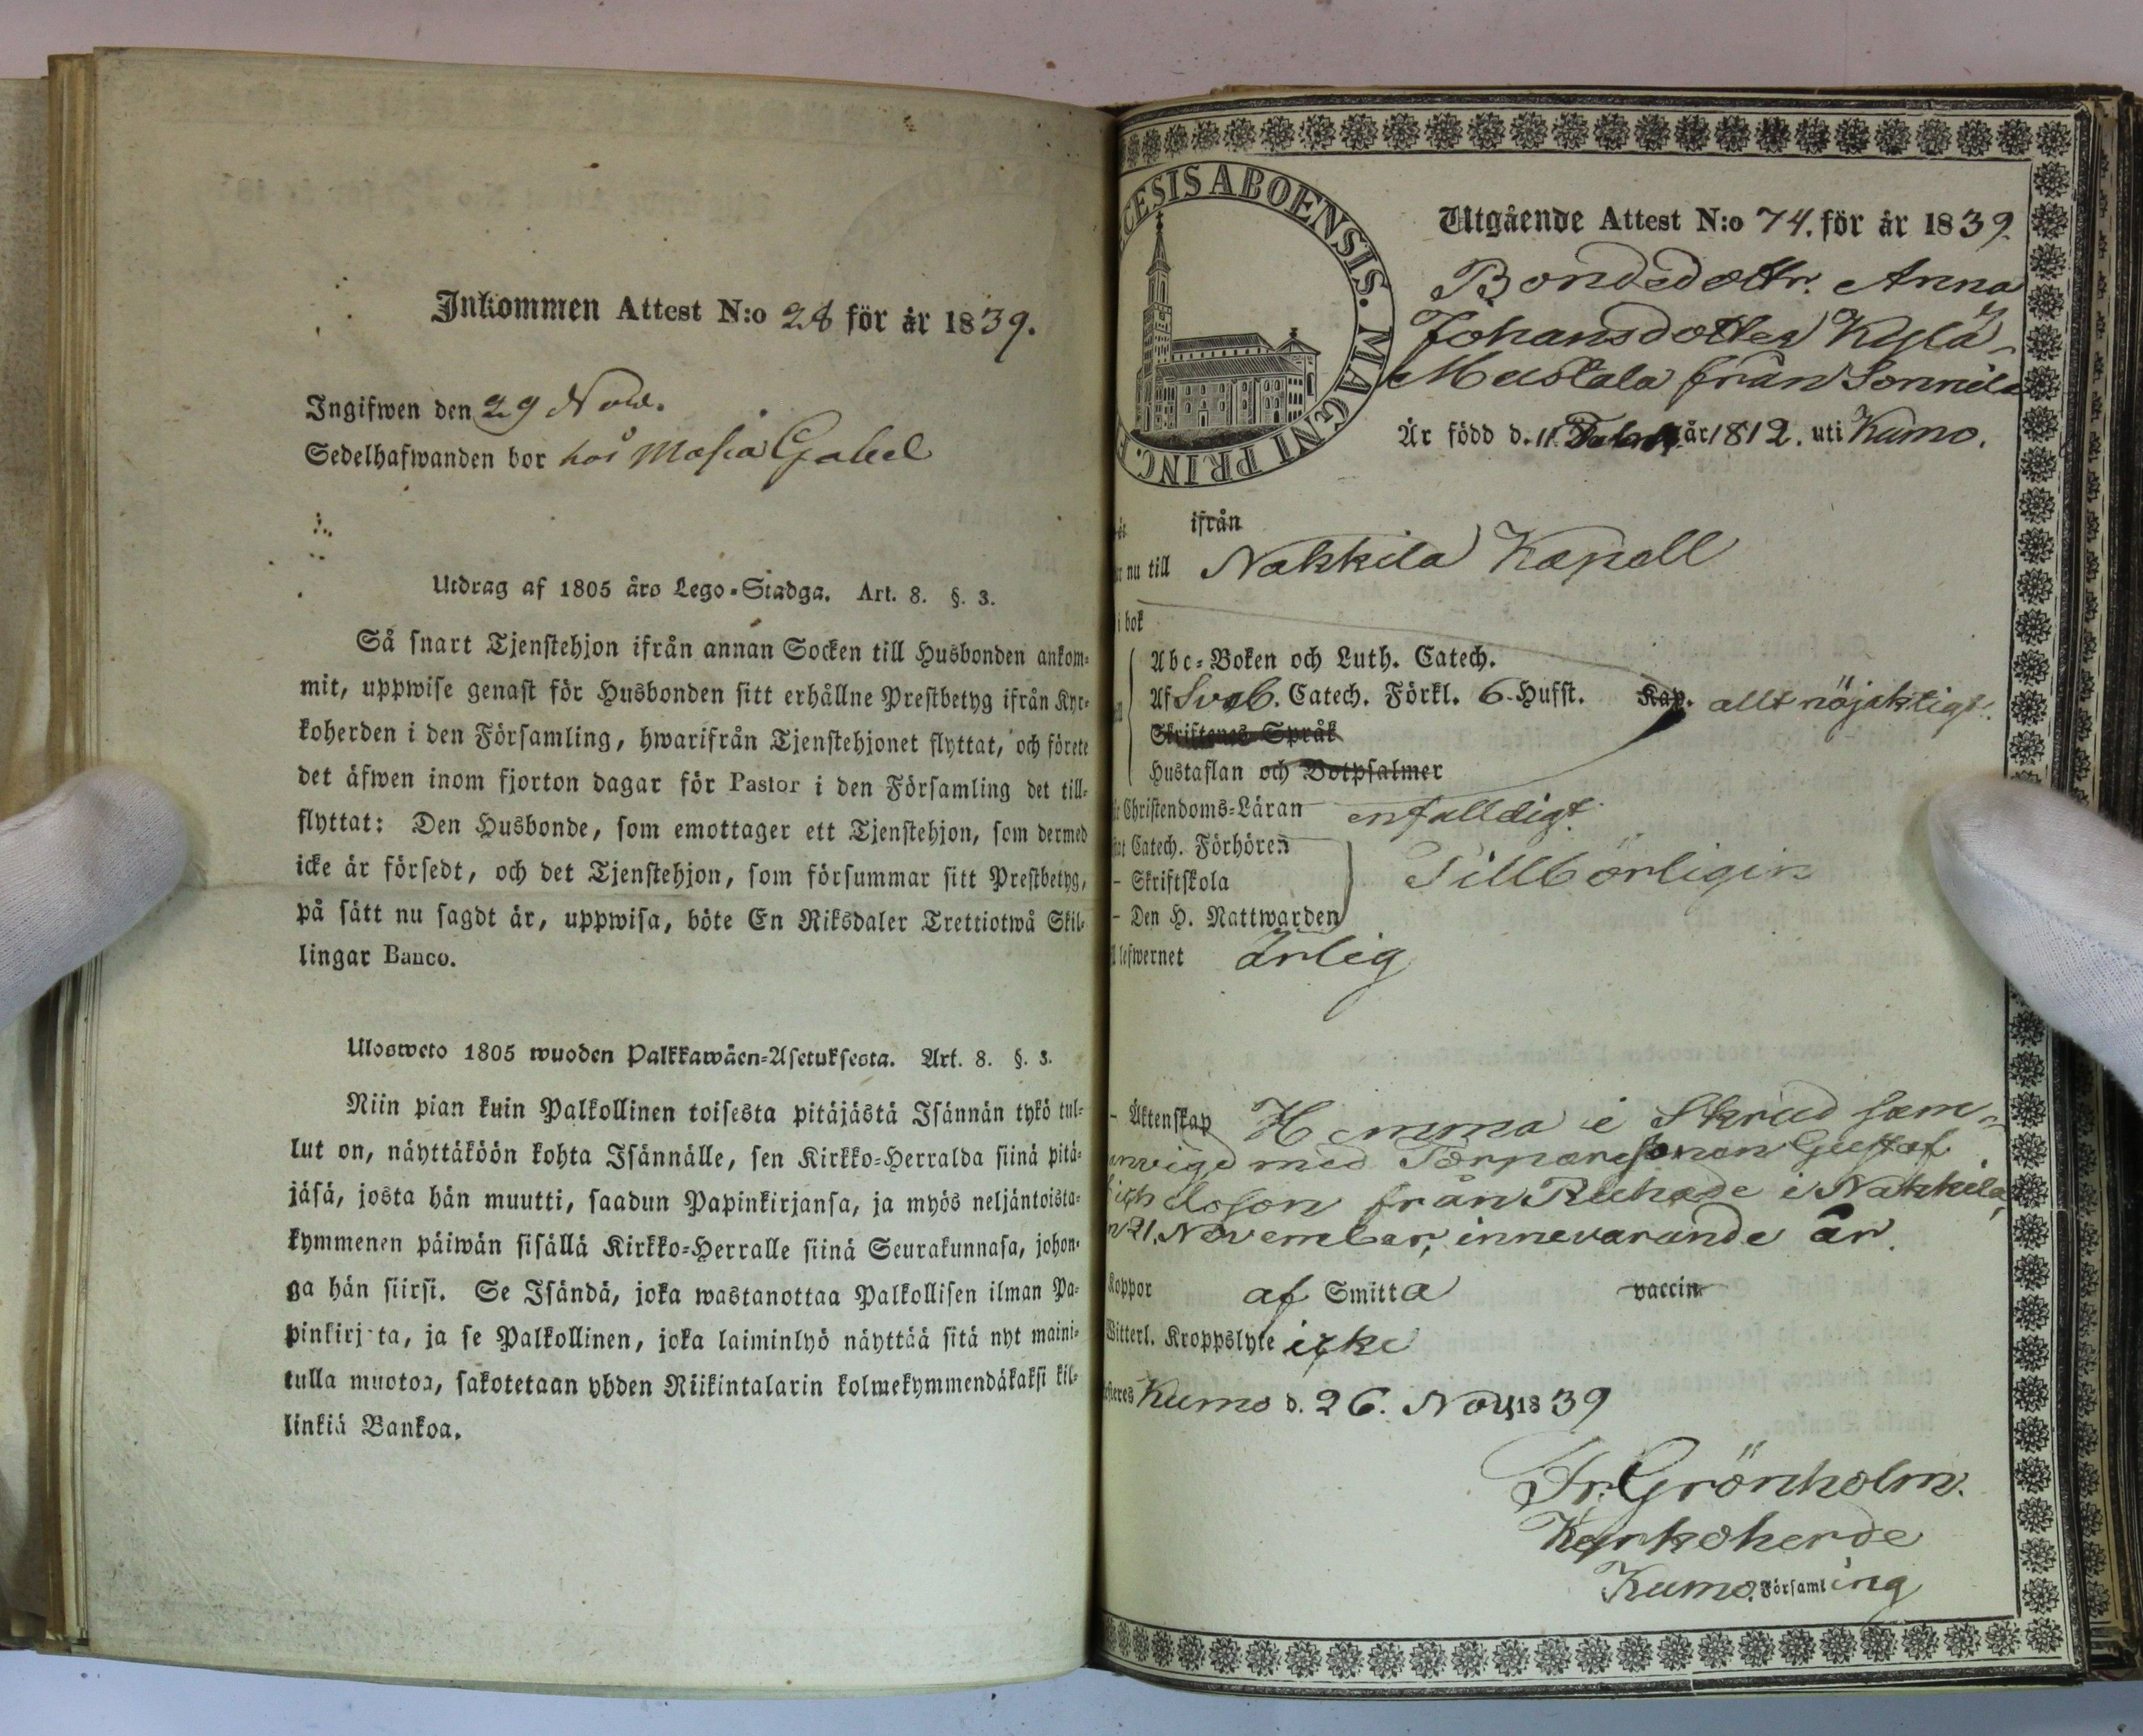 Inkommen Attest N:o 28 för år 1839.
Ingifwen den 29 Nov.
Sedelhafwanden bor hos Masia Gabel
Utdrag af 1805 års Lego-Stadga. Art. 8. §. 3.
Så snart Tjenstehjon ifrån annan Socken till Husbonden ankom-
mit, uppwise genast för Husbonden sitt erhållne Prestbetyg ifrån Kyr-
koherden i den Församling, hwarifrån Tjenstehjonet flyttat, och förete
det äfwen inom fjorton dagar för Pastor i den Församling det till-
flyttat: Den Husbonde, som emottager ett Tjenstehjon, som dermed
icke är försedt, och det Tjenstehjon, som försummar sitt Prestbetyg,
på sätt nu sagdt är, uppwisa, böte En Riksdaler Trettiotwå Skil-
lingar Banco.
Ulosweto 1805 wuoden Palkkawäen-Asetuksesta. Art. 8. §. 3.
Niin pian kuin Palkollinen toisesta pitäjästä Isännän tykö tul-
lut on, näyttäköön kohta Isännälle, sen Kirkko-Herralda siinä pitä-
jäsä, josta hän muutti, saadun Papinkirjansa, ja myös neljäntoista-
kymmenen päiwän sisällä Kirkko-Herralle siinä Seurakunnasa, johon-
ga hän siirsi. Se Isändä, joka wastanottaa Palkollisen ilman Pa-
pinkirj ta, ja se Palkollinen, joka laiminlyö näyttää sitä nyt maini-
tulla muotoa, sakotetaan yhden Riikintalarin kolmekymmendäkaksi kil-
linkiä Bankoa.
CESIS ABOENSIS. MAGNI PRINC.
Utgående Attest N:o 74. för år 1839.
Bondedottr. Anna
Johansdotter Kylä-
Mustala från Sonnila
Är född d. 11. år 1812. uti Kumo.
ifrån
nu till Nakkila Kapell
i bok
Abc-Boken och Luth. Catech.
Af Sveb. Catech. Förkl. 6 Hufst. Kap. allt nöjaktigt.
Skriftenes Språk
Hustaflan och Botpsalmer
Christendoms-Läran enfalldigt.
Catech. Förhören
- Skriftskola Tillbörligin
- Den H. Nattwarden
lefwernet ärlig
- Äktenskap Hemma i Skrud sam-
anvigd med Torparesonen Gustaf
från Ruhade i Nakkila,
21. November, innevarande år.
Koppor af Smitta vaccin.
Witterl. Kroppslyte icke
Kumo d. 26. Nov. 1839
Fr. Grönholm.
Kyrkoherde
Kumo. Församling